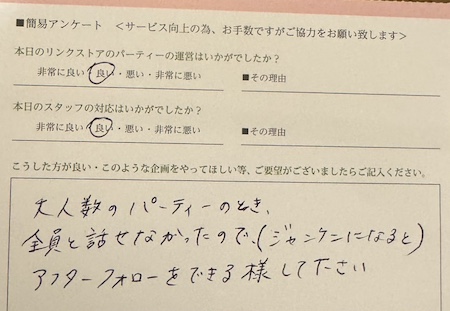 ■簡易アンケート ＜サービス向上の為、お手数ですがご協力をお願い致します＞
本日のリンクストアのパーティーの運営はいかがでしたか？
非常に良い・良い・悪い・非常に悪い ■その理由
本日のスタッフの対応はいかがでしたか？
非常に良い・良い・悪い・非常に悪い ■その理由
こうした方が良い・このような企画をやってほしい等、ご要望がございましたらご記入ください。
大人数のパーティーのとき、
全員と話せなかったので、(ジャンケンになると)
アフターフォローをできる様して下さい